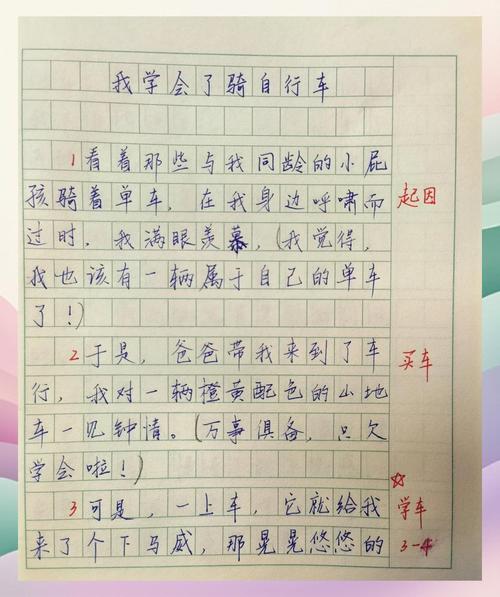 我学会了骑自行车
1看着那些与我同龄的小屁
孩骑着单车，在我身边呼啸而 起因
过时，我满眼羡慕，(我觉得，
我也该有一辆属于自己的单车
了！)
2于是，爸爸带我来到了车 买车
行，我对一辆橙黄配色的山地
车一见钟情。(万事俱备，只欠
学会啦！)
3可是，一上车，它就给我 ☆学车
来了个下马威，那晃晃悠悠的 3-4